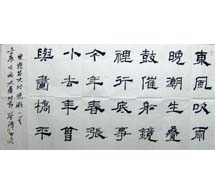 東風吹雨
晚潮生疊
鼓催船鏡
裡行底事
今年春漲
小去年曾
與畫橋平